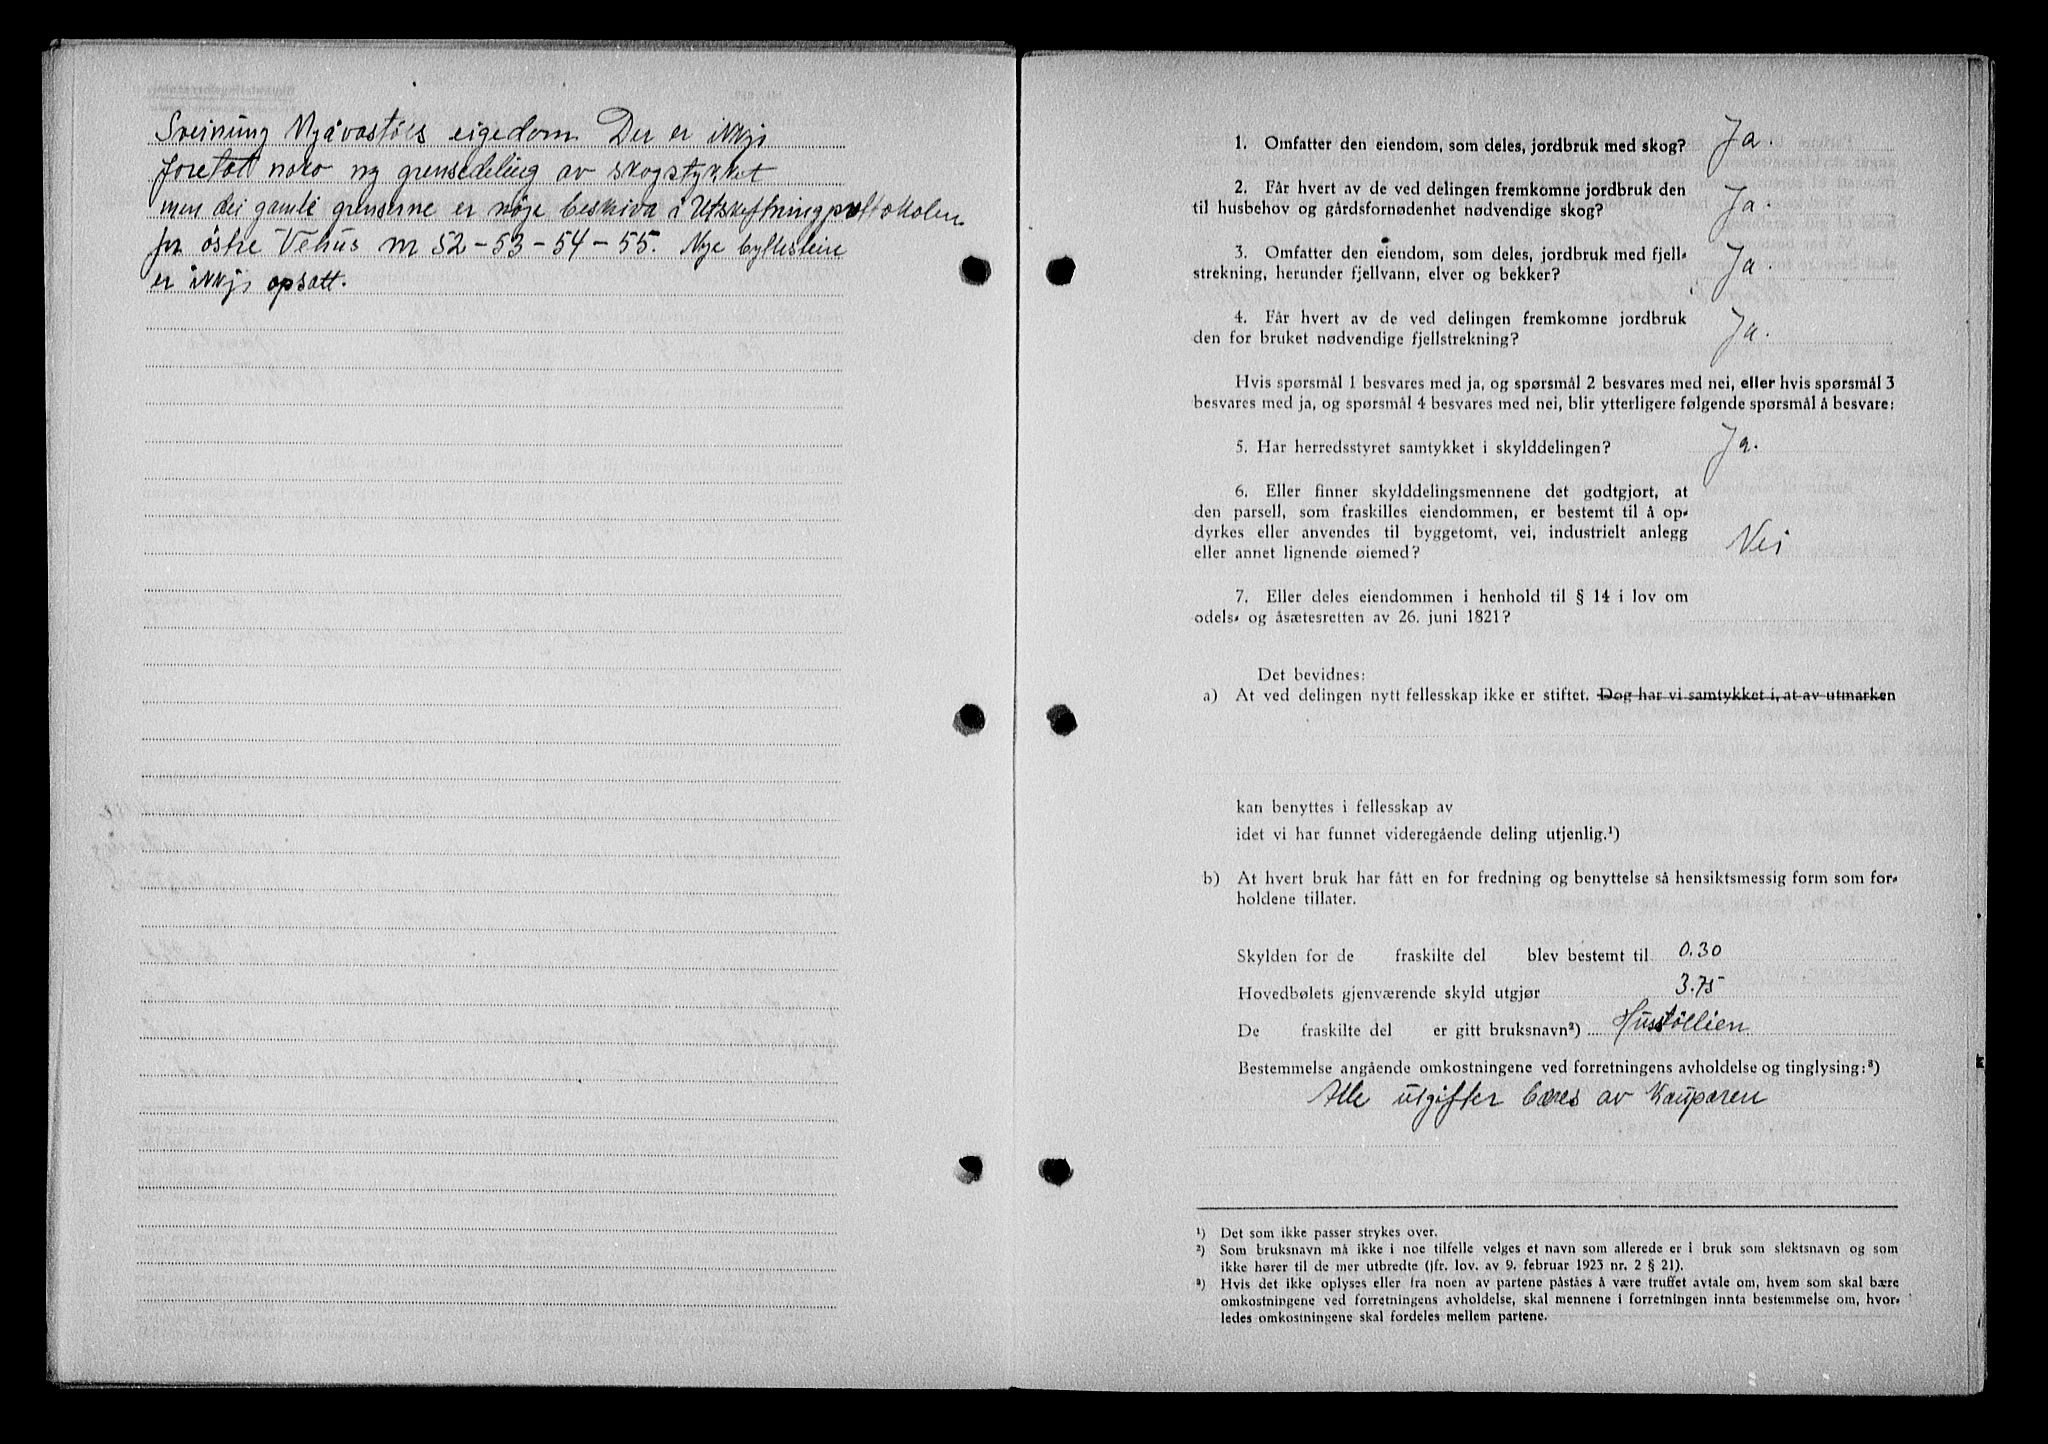 Sveinung Mjåvastöls eigedom. Der er ikkje
foretat noko ny grensedeling av skogstykket
men dei gamle grenserne er nöje beskriva i Utskiftningprottokolen
for östre Vehus m 52-53-54-55. Nye byttesteine
er ikkje opsatt.
1. Omfatter den eiendom, som deles, jordbruk med skog? Ja.
2. Får hvert av de ved delingen fremkomne jordbruk den
til husbehov og gårdsfornødenhet nødvendige skog? Ja.
3. Omfatter den eiendom, som deles, jordbruk med fjell-
strekning, herunder fjellvann, elver og bekker? Ja.
4. Får hvert av de ved delingen fremkomne jordbruk
den for bruket nødvendige fjellstrekning? Ja.
Hvis spørsmål 1 besvares med ja, og spørsmål 2 besvares med nei, eller hvis spørsmål 3
besvares med ja, og spørsmål 4 besvares med nei, blir ytterligere følgende spørsmål å besvare:
5. Har herredsstyret samtykket i skylddelingen? Ja.
6. Eller finner skylddelingsmennene det godtgjort, at
den parsell, som fraskilles eiendommen, er bestemt til å op-
dyrkes eller anvendes til byggetomt, vei, industrielt anlegg
eller annet lignende øiemed? Nei
7. Eller deles eiendommen i henhold til § 14 i lov om
odels- og åsætesretten av 26. juni 1821?
Det bevidnes:
a) At ved delingen nytt fellesskap ikke er stiftet. Dog har vi samtykket i, at av utmarken
kan benyttes i fellesskap av
idet vi har funnet videregående deling utjenlig.¹)
b) At hvert bruk har fått en for fredning og benyttelse så hensiktsmessig form som for-
holdene tillater.
Skylden for de fraskilte del blev bestemt til 0.30
Hovedbølets gjenværende skyld utgjør 3.75
De fraskilte del er gitt bruksnavn²) Husstöllien
Bestemmelse angående omkostningene ved forretningens avholdelse og tinglysing:³)
Alle utgifter bæres av kauparen
¹) Det som ikke passer strykes over.
²) Som bruksnavn må ikke i noe tilfelle velges et navn som allerede er i bruk som slektsnavn og som
ikke hører til de mer utbredte (jfr. lov. av 9. februar 1923 nr. 2 § 21).
³) Hvis det ikke oplyses eller fra noen av partene påståes å være truffet avtale om, hvem som skal bære
omkostningene ved forretningens avholdelse, skal mennene i forretningen innta bestemmelse om, hvor-
ledes omkostningene skal fordeles mellem partene.